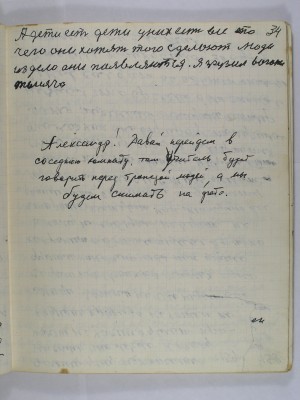 А дети ест дети у них ест все это 34
чего они хотят того сделают люди
из дело они паявляются.
Александр! Давай перейдем в
соседнюю комнату, там учитель будет
говорить перед группой людей, а мы
будем снимать на фото.